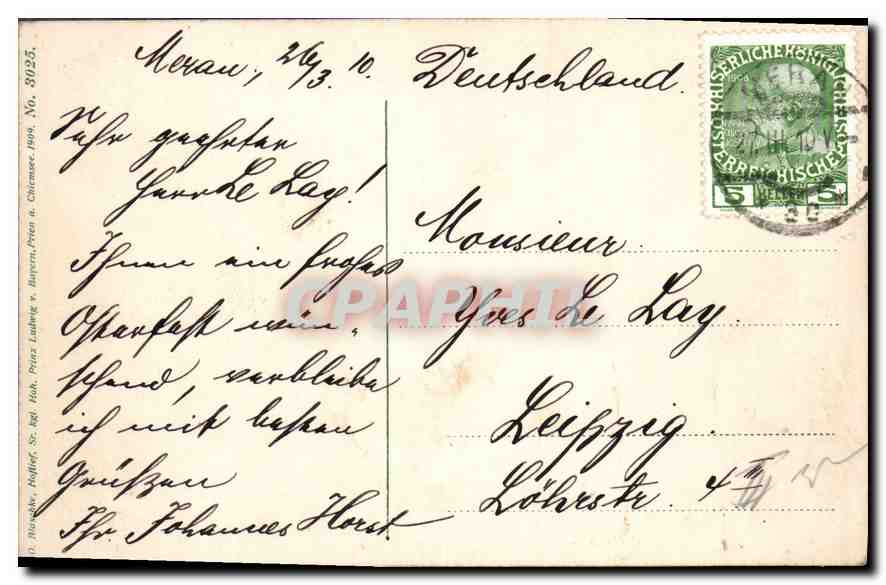 Meran, 26/3. 10.
Sehr geehrter
Herr Le Lay!
Ihnen ein frohes
Osterfest wün-
schend, verbleibe
ich mit besten
Grüßen
Ihr Johannes Horst.
Deutschland.
Monsieur
Yves Le Lay.
Leipzig.
Löhrstr. 4 III
KAISERLICHE KÖNIGLICHE
ÖSTERREICHISCHE
1908
5 HELLER 5
MERAN
27. III. 10
O. Blaschke, Hoflief. Sr. kgl. Hoh. Prinz Ludwig v. Bayern, Prien a. Chiemsee. 1909. No. 3025.
CPAPHIL